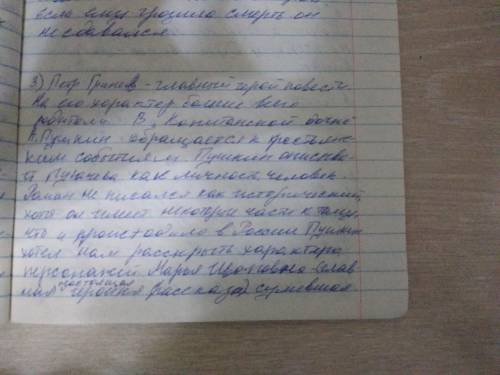 если ему грозила смерть он
не сдавался
3) Петр Гринев - главный герой повести.
На его характер больше всего
родители В, Капитанской дочке
А. Пушкин обращается к крестьянс-
ким событиям Пушкин описыва-
ет Пугачева как личность, человек.
Роман не писался как исторический,
хотя он имеет некоторые части к тому,
что и происходило в России Пушкин
хотел нам расскрыть характера
персонажей Марья Ивановна глав
настоящая
ная героиня рассказа, сумевшая